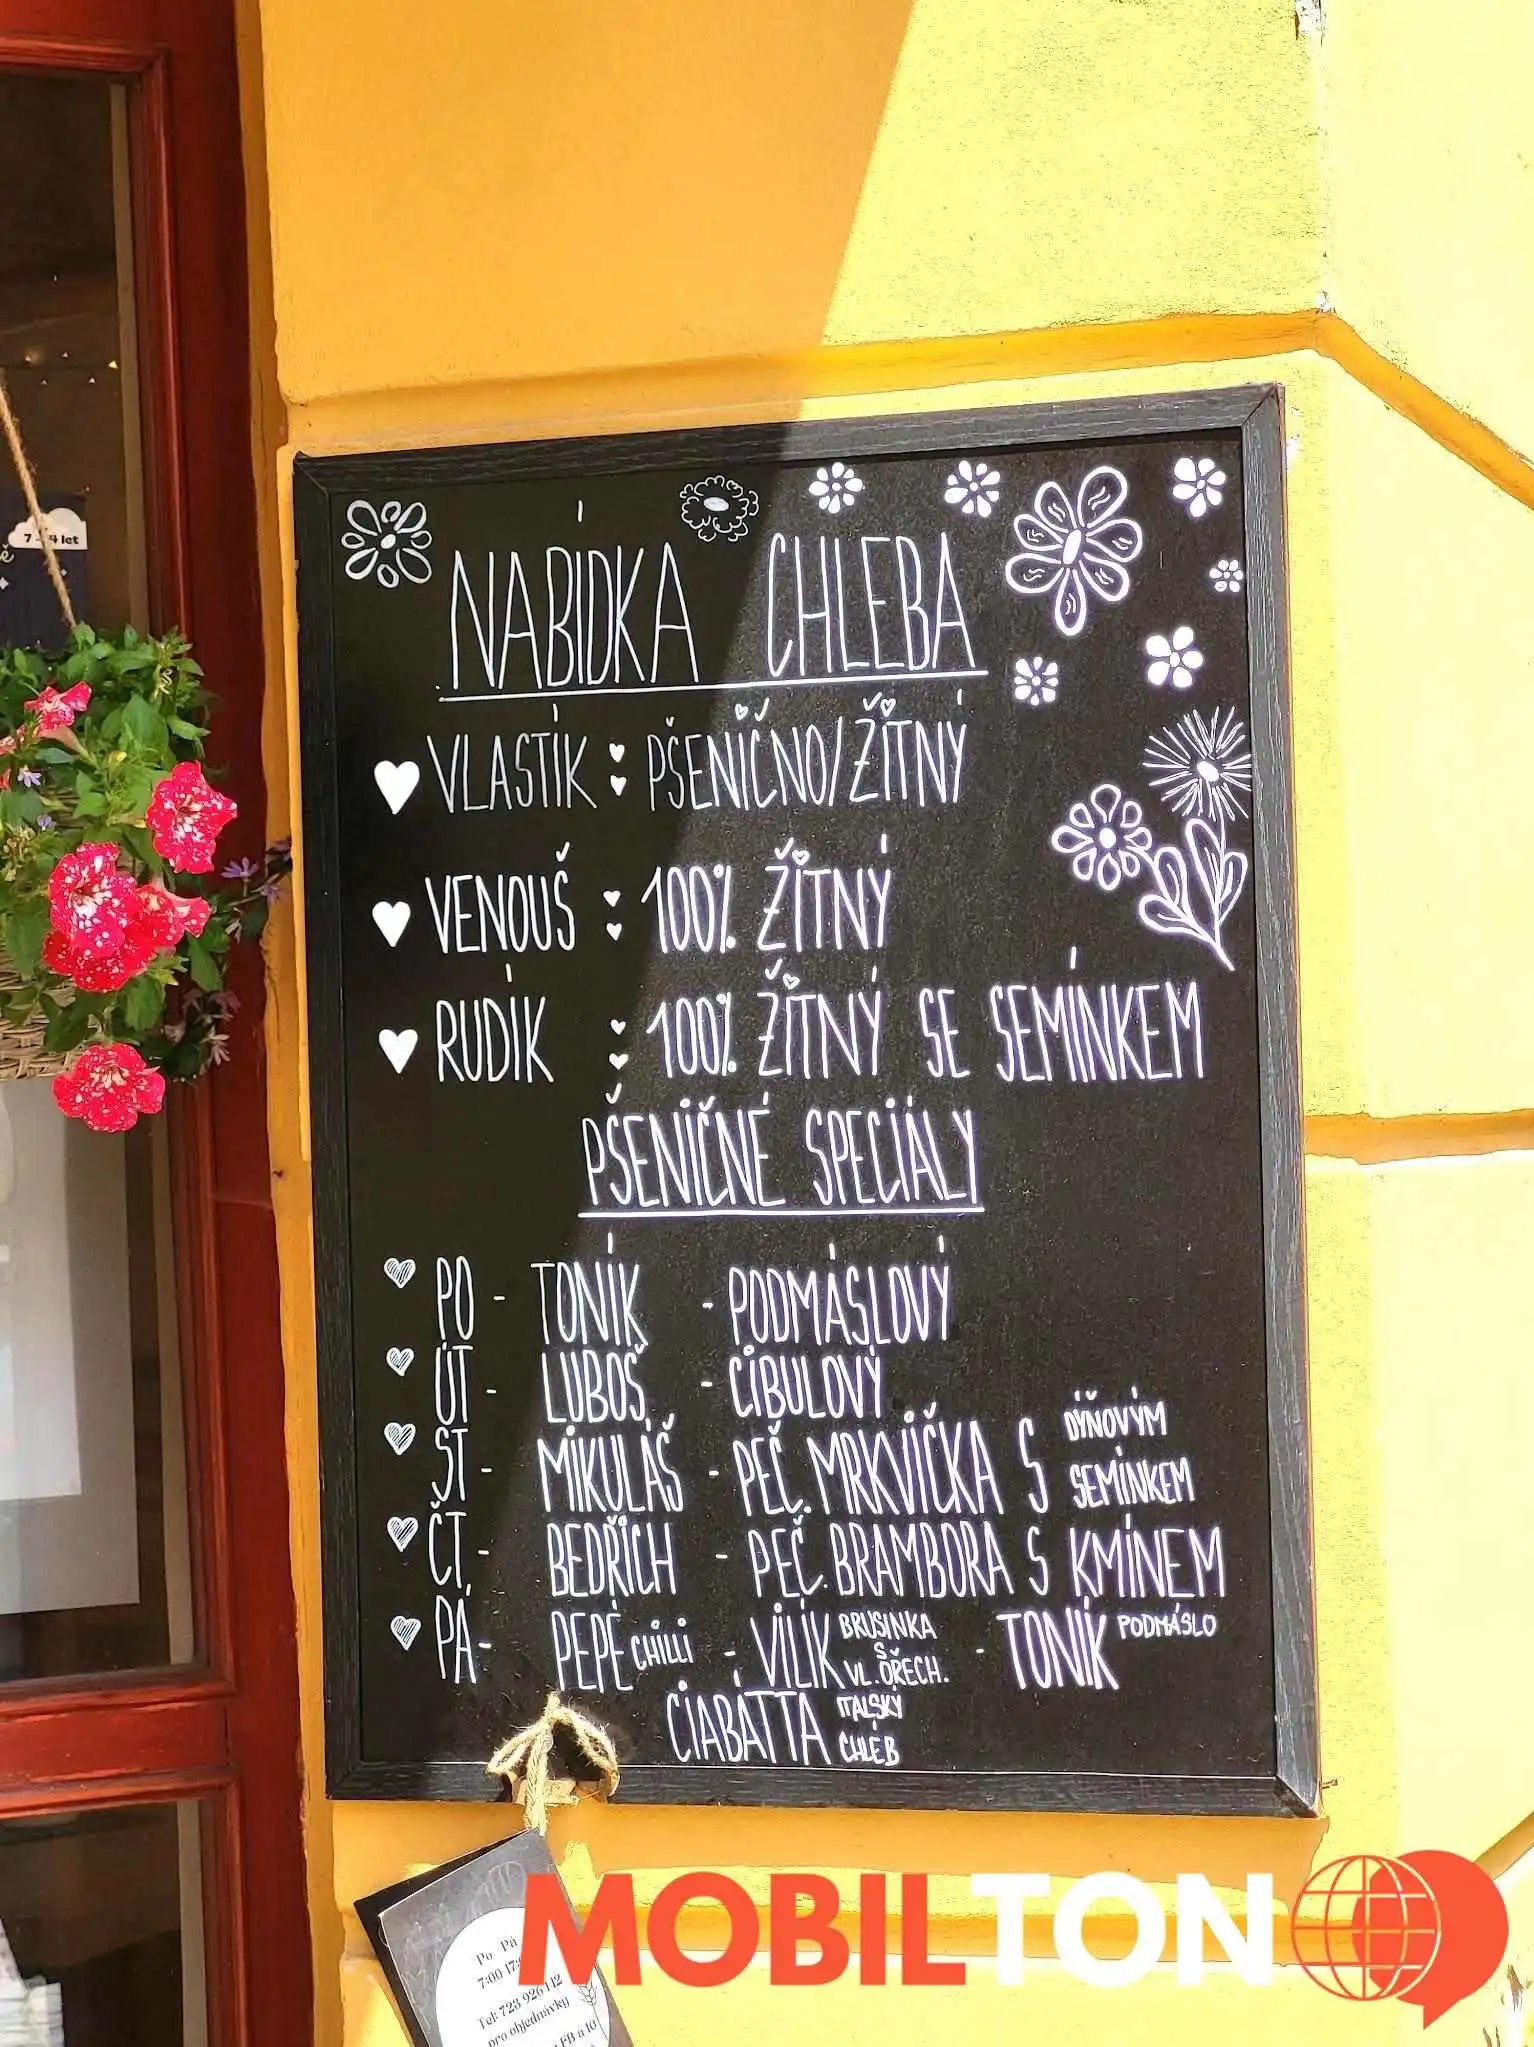 7 - 14 let
NABÍDKA CHLEBA
VLASTÍK : PŠENIČNO/ŽITNÝ
VENOUŠ : 100% ŽITNÝ
RUDÍK : 100% ŽITNÝ SE SEMÍNKEM
PŠENIČNÉ SPECIÁLY
PO - TONÍK - PODMÁSLOVÝ
ÚT - LUBOŠ - CIBULOVÝ
ST - MIKULÁŠ - PEČ. MRKVIČKA S DÝŇOVÝM
SEMÍNKEM
ČT - BEDŘICH - PEČ. BRAMBORA S KMÍNEM
PÁ - PEPÉ CHILLI - VILÍK BRUSINKA S VL. OŘECH. - TONÍK PODMÁSLO
CIABATTA ITALSKÝ CHLÉB
MOBILTON
Po Pá
7:00
Tel: 723 926 112
pro objednávky
FB a IG